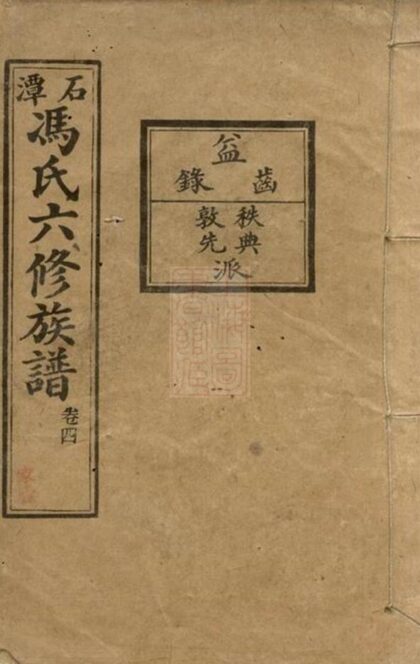 益
齒錄
秩典
敦先
派
石潭
馮氏六修族譜
卷四